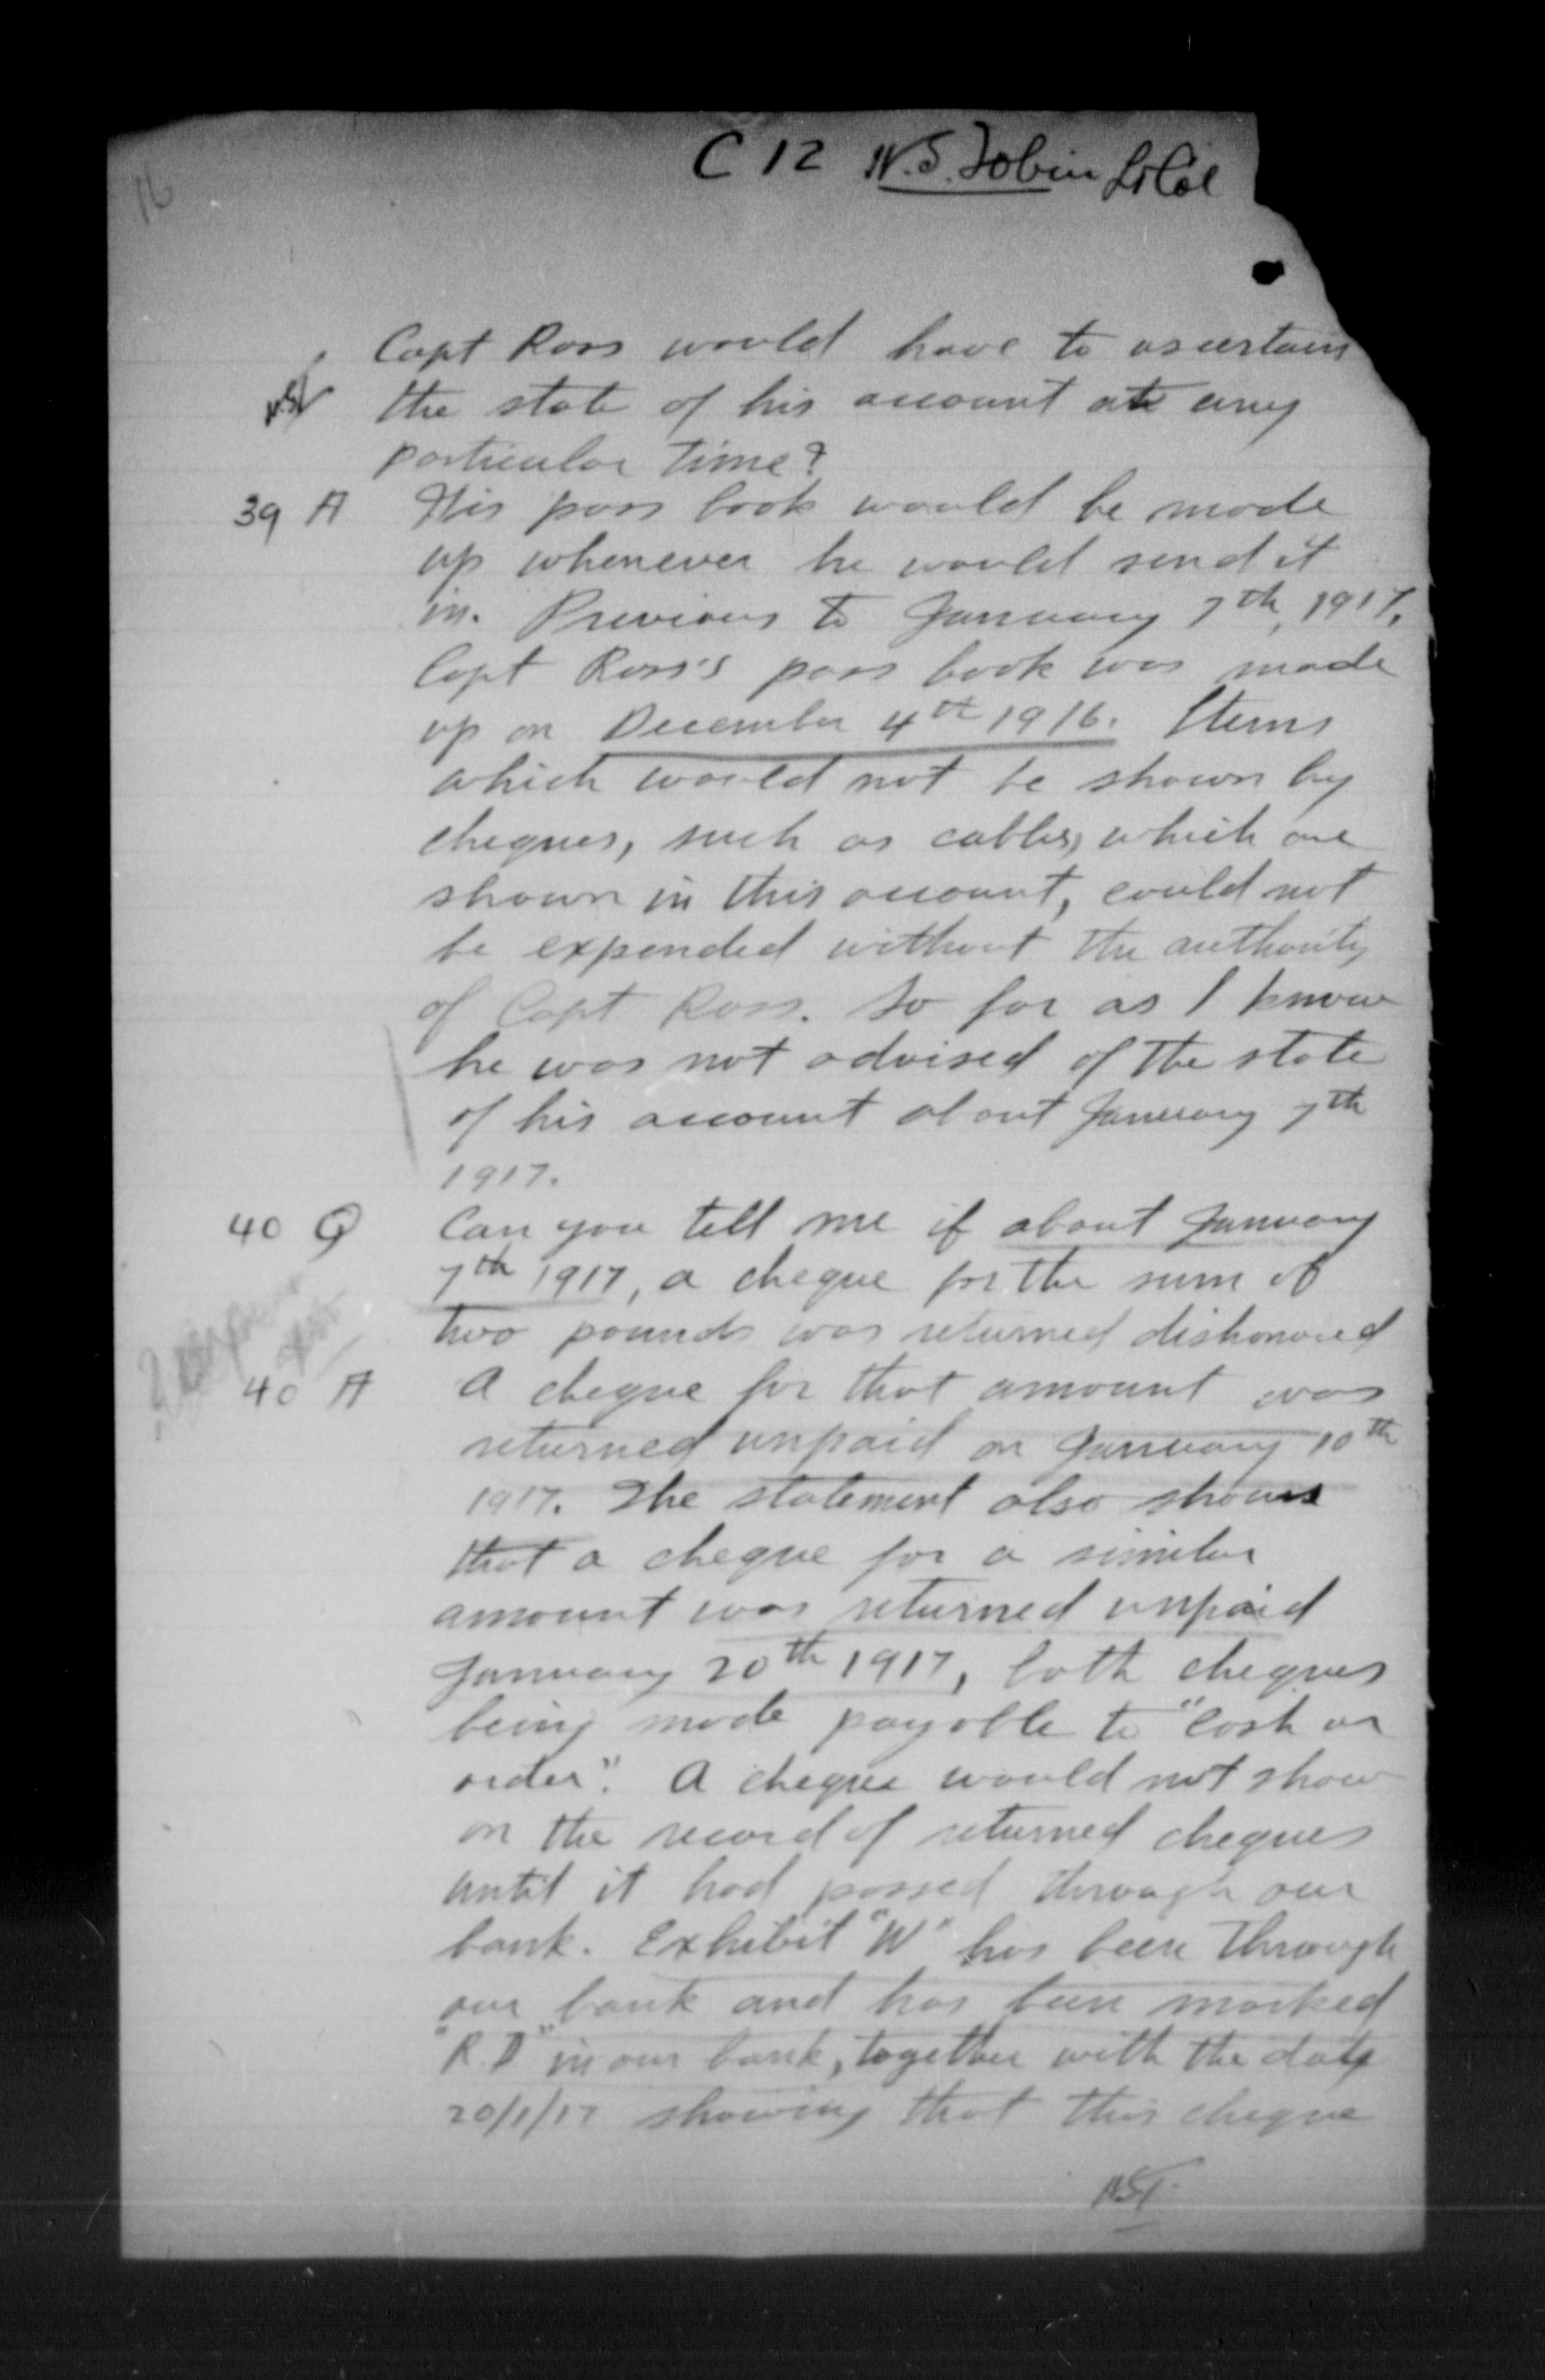 16
C 12 H.S. Tobin Lt Col
Capt Ross would have to ascertain
HST the state of his account at any
particular time?
39 A His pass book would be made
up whenever he would send it
in. Previous to January 7th, 1917,
Capt Ross's pass book was made
up on December 4th 1916. Items
which would not be shown by
cheques, such as cables, which are
shown in this account, could not
be expended without the authority
of Capt Ross. So far as I know
he was not advised of the state
of his account about January 7th
1917.
40 Q Can you tell me if about January
7th 1917, a cheque for the sum of
two pounds was returned dishonored
40 A A cheque for that amount was
returned unpaid on January 10th
1917. The statement also shows
that a cheque for a similar
amount was returned unpaid
January 20th 1917, both cheques
being made payable to "Cash or
order". A cheque would not show
on the record of returned cheques
until it had passed through our
bank. Exhibit "W" has been through
our bank and has been marked
"R.D" in our bank, together with the date
20/1/17 showing that this cheque
HST.